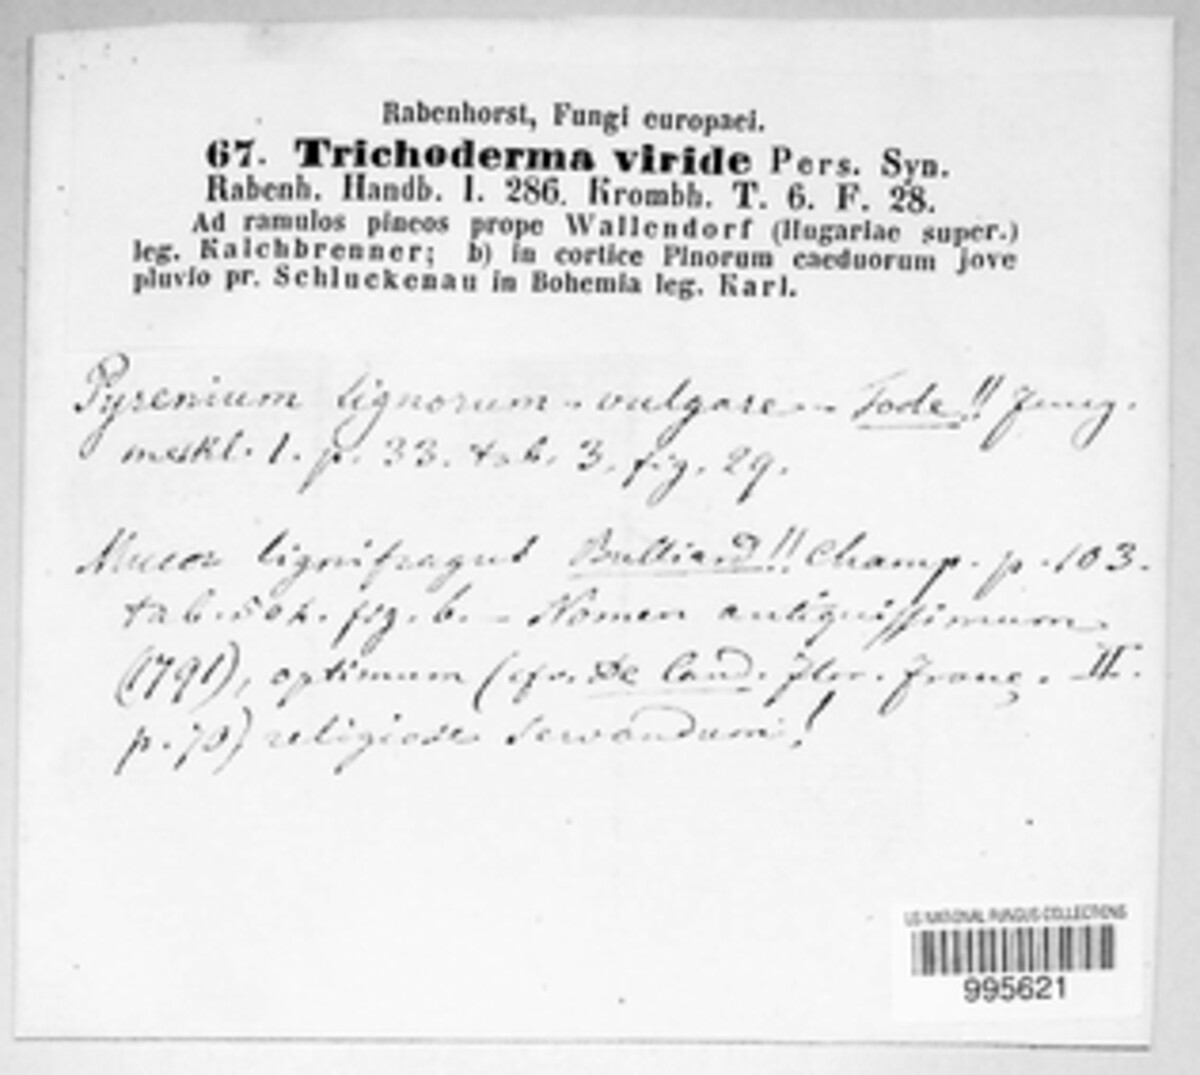 Rabenhorst, Fungi europaei.
67. Trichoderma viride Pers. Syn.
Rabenh. Handb. I. 286. Krombh. T. 6. F. 28.
Ad ramulos pineos prope Wallendorf (Hugariae super.)
leg. Kalchbrenner; b) in cortice Pinorum caeduorum jove
pluvio pr. Schluckenau in Bohemia leg. Karl.
Pyrenium lignorum - vulgare - Tode!! Fung.
meckl. 1. p. 33. tab. 3. fig. 29.
Mucor lignifragus Bulliard!! Champ. p. 103.
tab. 504. fig. 6. - Nomen antiquissimum
(1791), optimum (cfr. De Cand. flor. franç. II.
p. 70) religiose servandum!
US NATIONAL FUNGUS COLLECTIONS
995621